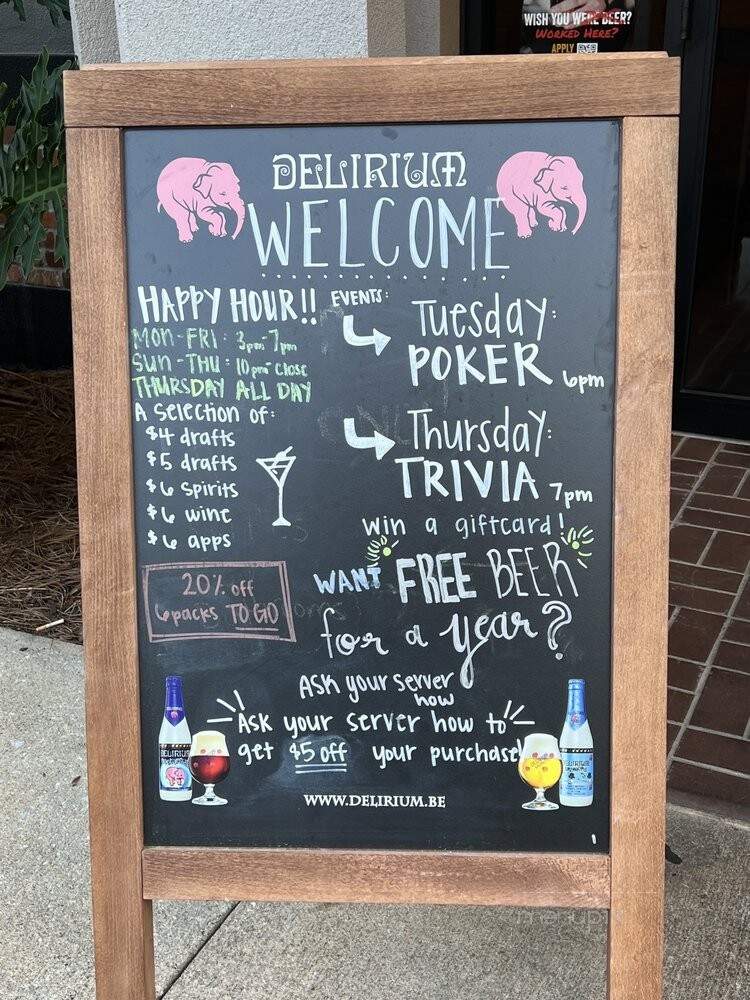 WISH YOU WERE BEER?
WORKED HERE?
APPLY
DELIRIUM
WELCOME
HAPPY HOUR!!
MON-FRI: 3pm-7pm
SUN-THU: 10pm-close
THURSDAY ALL DAY
A selection of:
$4 drafts
$5 drafts
$6 spirits
$6 wine
$6 apps
20% off
6packs TO GO
EVENTS:
Tuesday:
POKER 6pm
Thursday:
TRIVIA 7pm
win a giftcard!
WANT FREE BEER
for a year?
Ask your server
how
Ask your server how to
get $5 off your purchase!
DELIRIUM
DELIRIUM
WWW.DELIRIUM.BE